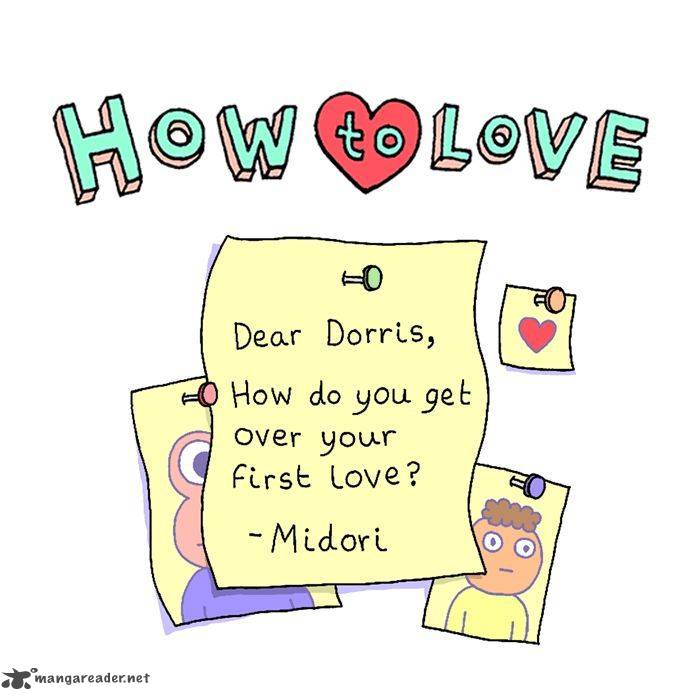 HOW to LOVE
Dear Dorris,
How do you get
over your
first love?
-Midori
mangareader.net